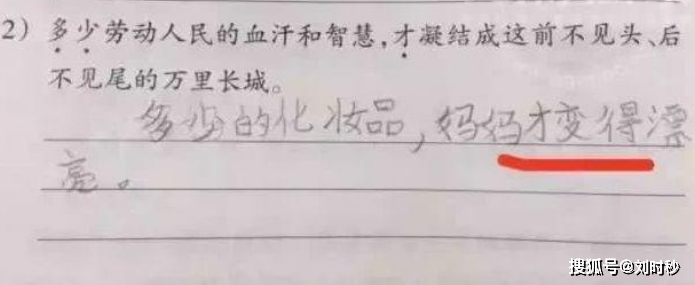 2) 多少劳动人民的血汗和智慧,才凝结成这前不见头、后
不见尾的万里长城。
多少的化妆品，妈妈才变得漂
亮。
搜狐号@刘时秒